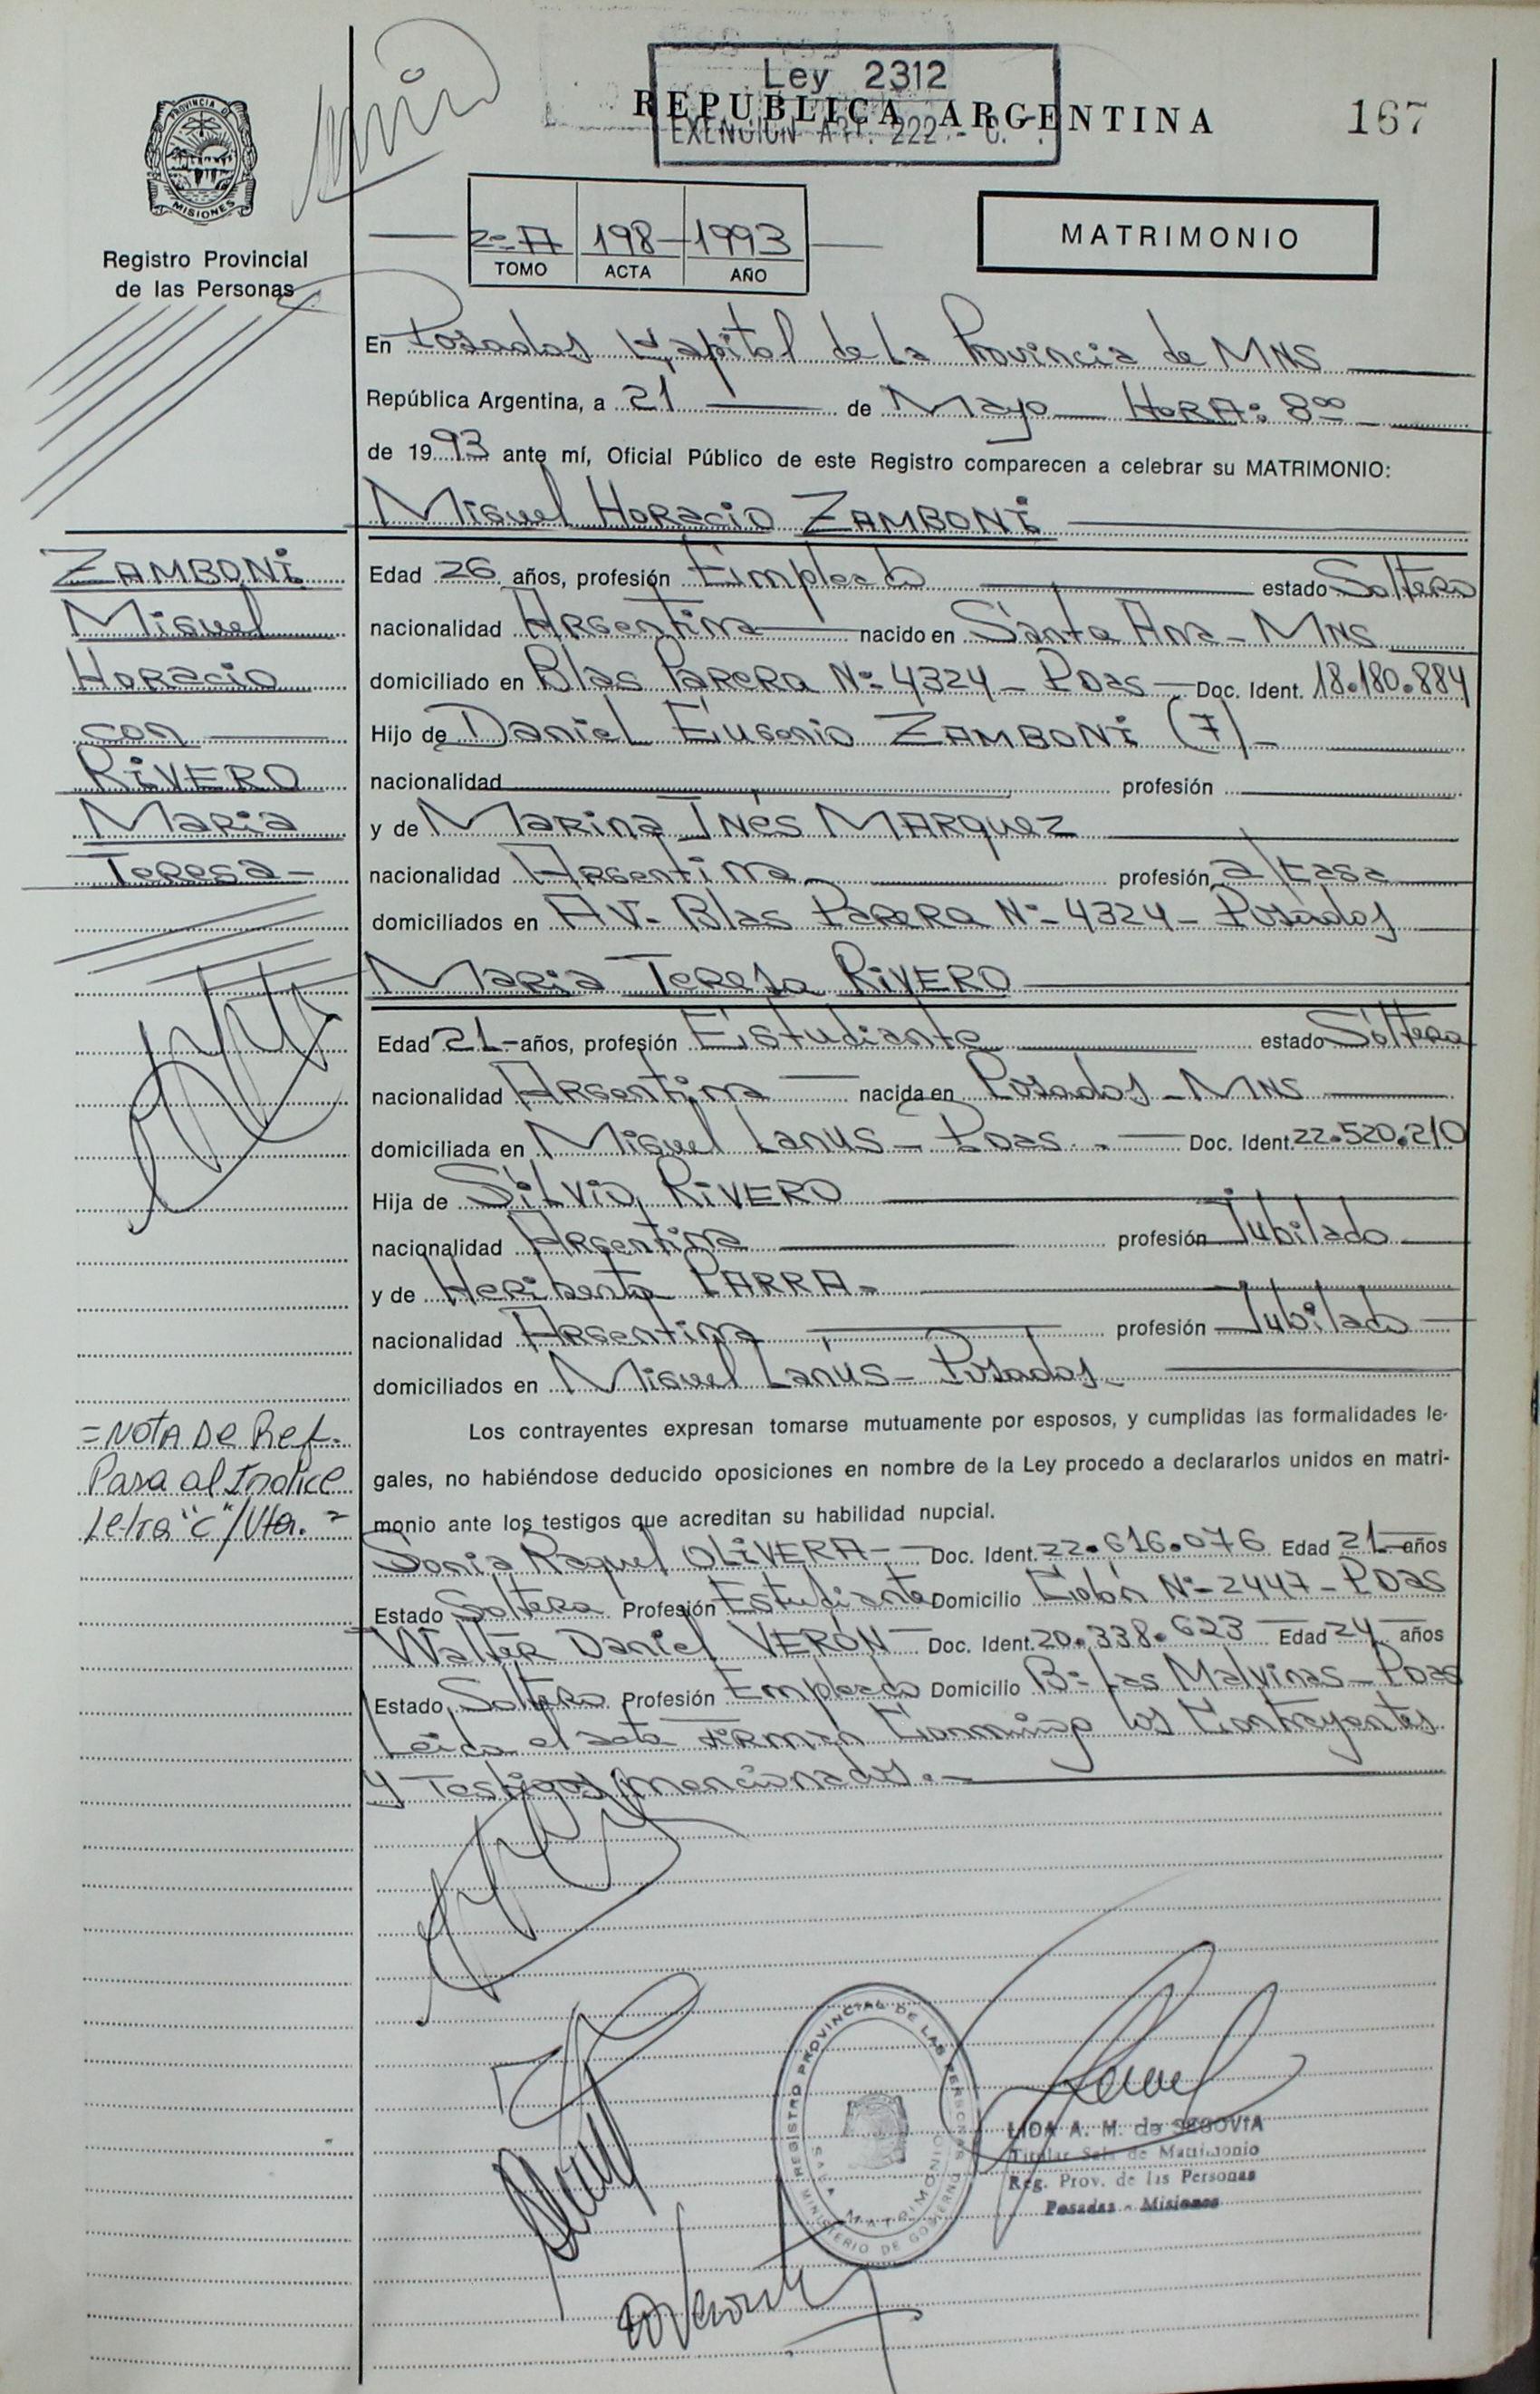 Ley 2312
REPUBLICA ARGENTINA
EXENCION ART. 222 - C.
167
PROVINCIA DE
MISIONES
Registro Provincial
de las Personas
2º A 198 - 1993
TOMO ACTA AÑO
MATRIMONIO
En Posadas Capital de La Provincia de MNS
República Argentina, a 21 de Mayo HORA: 8ºº
de 1993 ante mí, Oficial Público de este Registro comparecen a celebrar su MATRIMONIO:
Miguel Horacio ZAMBONI
ZAMBONI
Miguel
Horacio
con
RIVERO
Maria
Teresa -
Edad 26 años, profesión Empleado estado Soltero
nacionalidad Argentina nacido en Santa Ana - MNS
domiciliado en Blas Parera Nº 4324 - Pdas - Doc. Ident. 18.180.884
Hijo de Daniel Eugenio ZAMBONI (7) -
nacionalidad profesión
y de Marina Inés MARQUEZ
nacionalidad Argentina profesión a/casa
domiciliados en AV. Blas Parera Nº 4324 - Posadas
Maria Teresa RIVERO
Edad 21 - años, profesión Estudiante estado Soltera
nacionalidad Argentina nacida en Posadas - MNS
domiciliada en Miguel Lanus - Pdas. - Doc. Ident. 22.520.210
Hija de Silvio RIVERO
nacionalidad Argentina profesión Jubilado
y de Heriberta PARRA -
nacionalidad Argentina profesión Jubilado
domiciliados en Miguel Lanús - Posadas -
Los contrayentes expresan tomarse mutuamente por esposos, y cumplidas las formalidades le-
gales, no habiéndose deducido oposiciones en nombre de la Ley procedo a declararlos unidos en matri-
monio ante los testigos que acreditan su habilidad nupcial.
= NOTA De Ref.
Pasa al Indice
Letra "C"/Vta. =
Sonia Raquel OLIVERA - Doc. Ident. 22.616.076 Edad 21 años
Estado Soltera Profesión Estudiante Domicilio Colón Nº 2447 - Pdas
Walter Daniel VERÓN - Doc. Ident. 20.338.623 Edad 24 años
Estado Soltero Profesión Empleado Domicilio Bº Las Malvinas - Pdas
Leida el acta firman Conmigo los Contrayentes
y Testigos mencionados. -
REGISTRO PROVINCIAL DE LAS PERSONAS
MATRIMONIO
MINISTERIO DE GOBIERNO
LIDA A. M. de SEGOVIA
Titular Sala de Matrimonio
Reg. Prov. de las Personas
Posadas - Misiones